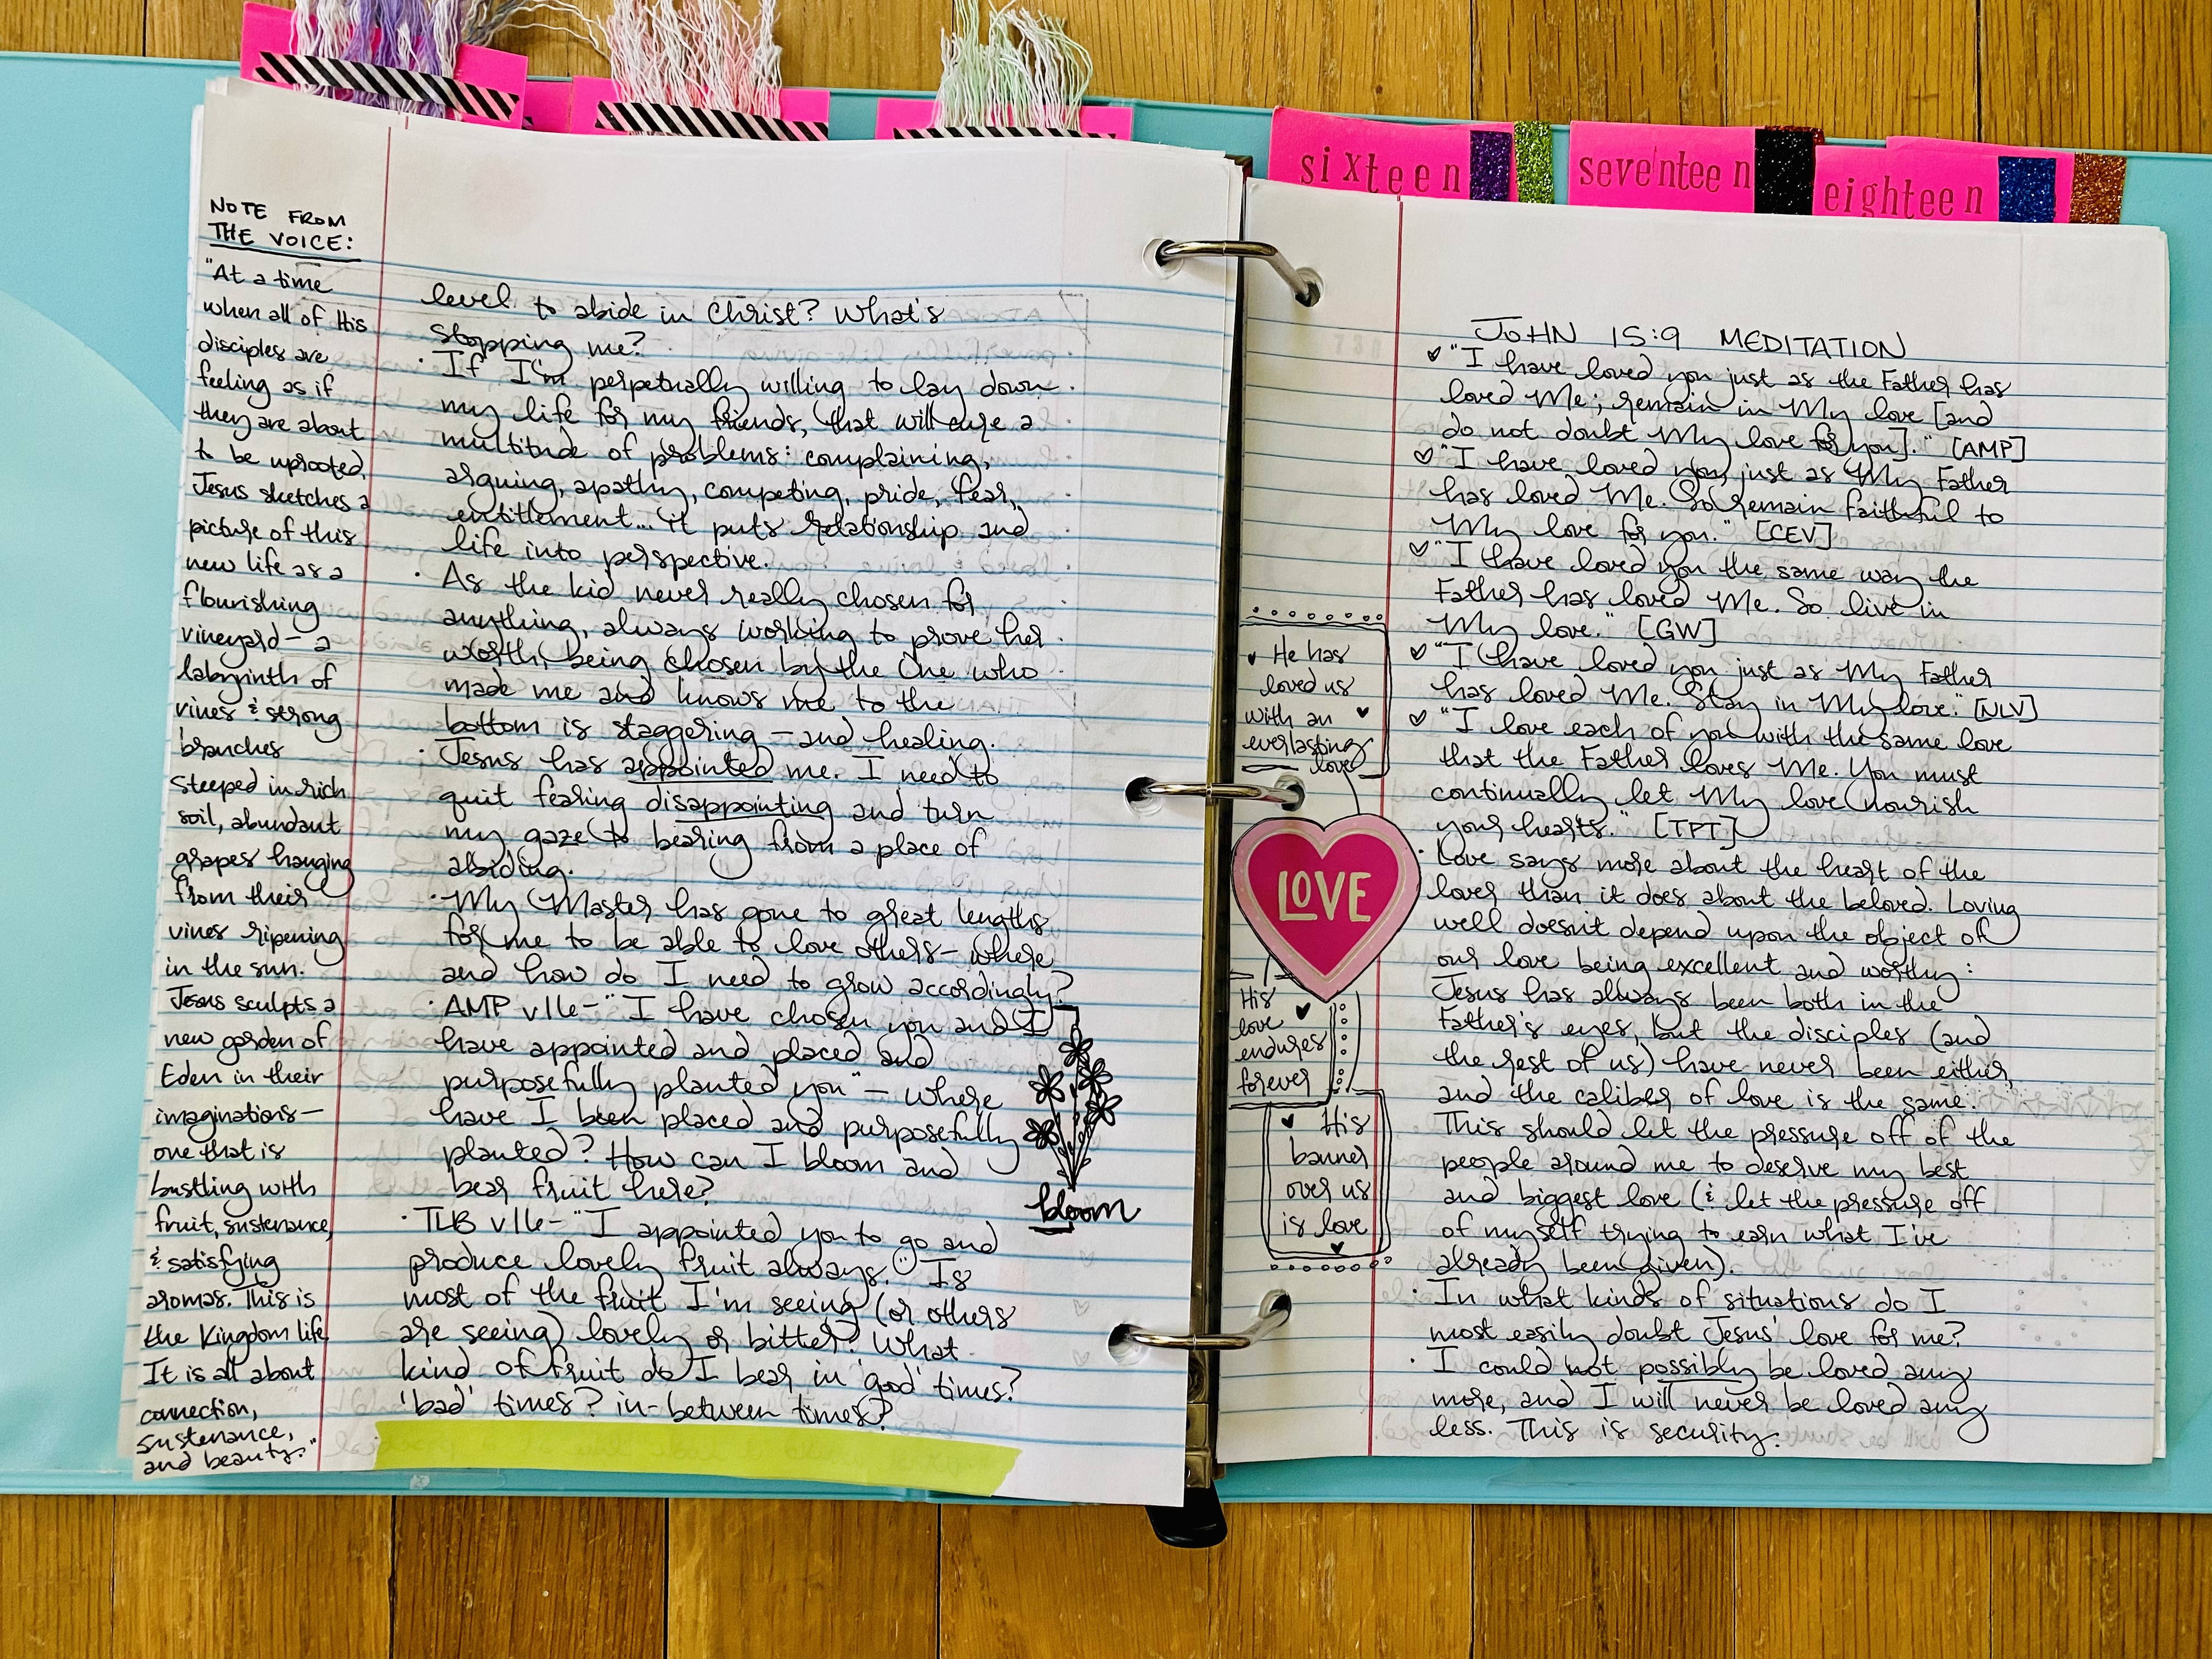 sixteen
seventeen
eighteen
NOTE FROM
THE VOICE:
"At a time
when all of His
disciples are
feeling as if
they are about
to be uprooted,
Jesus sketches a
picture of this
new life as a
flourishing
vineyard — a
labyrinth of
vines & strong
branches
steeped in rich
soil, abundant
grapes hanging
from their
vines ripening
in the sun.
Jesus sculpts a
new garden of
Eden in their
imaginations —
one that is
bustling with
fruit, sustenance,
& satisfying
aromas. This is
the Kingdom life.
It is all about
connection,
sustenance,
and beauty."
level to abide in Christ? What's
stopping me?
· If I'm perpetually willing to lay down
my life for my friends, that will cure a
multitude of problems: complaining,
arguing, apathy, competing, pride, fear,
entitlement... it puts relationship and
life into perspective.
· As the kid never really chosen for
anything, always working to prove her
worth, being chosen by the One who
made me and knows me to the
bottom is staggering — and healing.
· Jesus has appointed me. I need to
quit fearing disappointing and turn
my gaze to bearing from a place of
abiding.
· My Master has gone to great lengths
for me to be able to love others — where
and how do I need to grow accordingly?
· AMP v16 - "I have chosen you and I
have appointed and placed and
purposefully planted you" — where
have I been placed and purposefully
planted? How can I bloom and
bear fruit here?
bloom
· TLB v16 - "I appointed you to go and
produce lovely fruit always." Is
most of the fruit I'm seeing (or others
are seeing) lovely or bitter? What
kind of fruit do I bear in 'good' times?
'bad' times? in-between times?
JOHN 15:9 MEDITATION
♡ "I have loved you just as the Father has
loved Me; remain in My love [and
do not doubt My love for you]." [AMP]
♡ "I have loved you, just as My Father
has loved Me. So remain faithful to
My love for you." [CEV]
♡ "I have loved you the same way the
Father has loved Me. So live in
My love." [GW]
♡ "I have loved you just as My Father
has loved Me. Stay in My love." [NLV]
♡ "I love each of you with the same love
that the Father loves Me. You must
continually let My love nourish
your hearts." [TPT]
· Love says more about the heart of the
lover than it does about the beloved. Loving
well doesn't depend upon the object of
our love being excellent and worthy:
Jesus has always been both in the
Father's eyes, but the disciples (and
the rest of us) have never been either,
and the caliber of love is the same.
This should let the pressure off of the
people around me to deserve my best
and biggest love (& let the pressure off
of myself trying to earn what I've
already been given).
· In what kinds of situations do I
most easily doubt Jesus' love for me?
· I could not possibly be loved any
more, and I will never be loved any
less. This is security.
He has
loved us
with an
everlasting
love
LOVE
His
love
endures
forever
His
banner
over us
is love